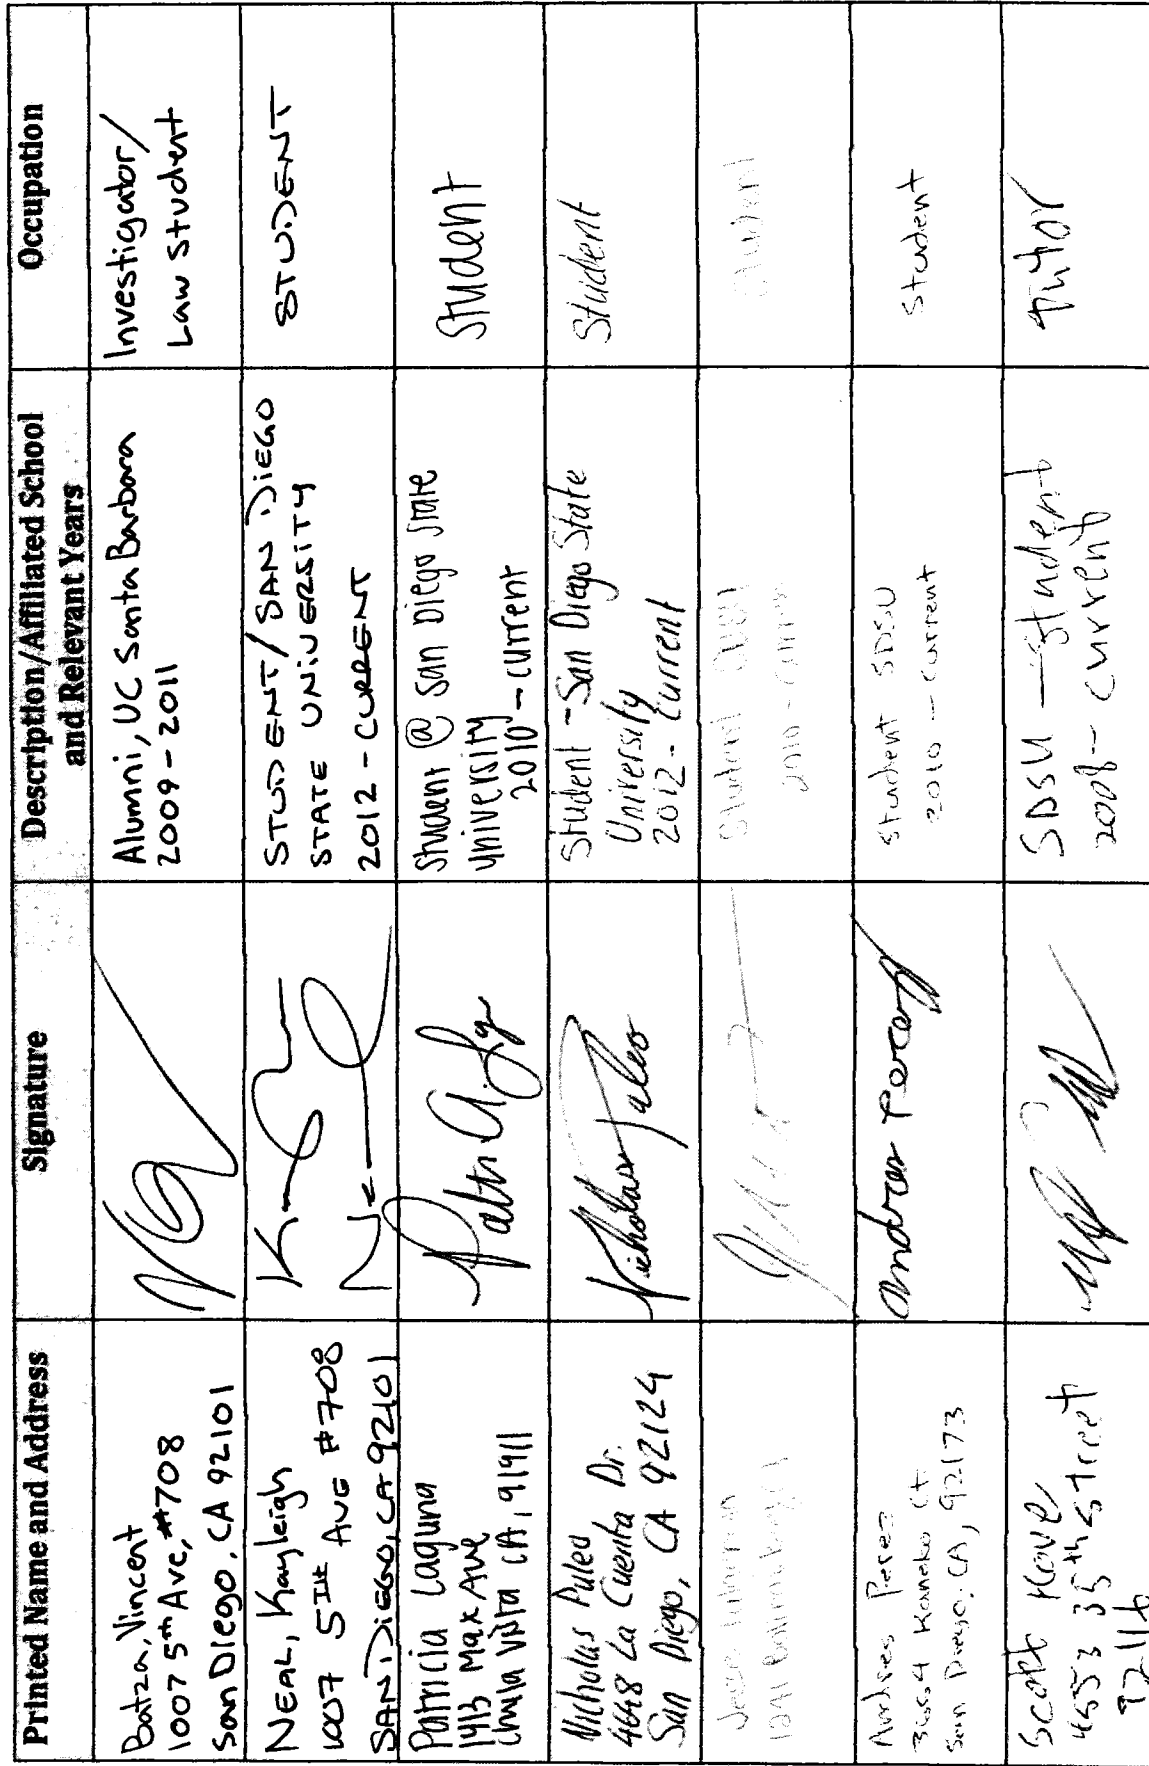 Printed Name and Address
Signature
Description/Affiliated School
and Relevant Years
Occupation
Batza, Vincent
1007 5th Ave, #708
San Diego, CA 92101
Alumni, UC Santa Barbara
2009-2011
Investigator/
Law Student
NEAL, Kayleigh
1007 5TH AVE #708
SAN DIEGO, CA 92101
STUDENT/SAN DIEGO
STATE UNIVERSITY
2012 - CURRENT
STUDENT
Patricia Laguna
1413 Max Ave
Chula Vista CA, 91911
Student @ San Diego State
University
2010 - current
Student
Nicholas Puleo
4648 La Cuenta Dr.
San Diego, CA 92124
Nicholas Puleo
Student - San Diego State
University
2012 - Current
Student
Student SDSU
2010 - Current
Student
Andres Perez
San Diego, CA, 92173
Andres Perez
Student SDSU
2010 - Current
Student
Scott
4553 35th Street
92116
SDSU - Student
2008 - current
Tutor